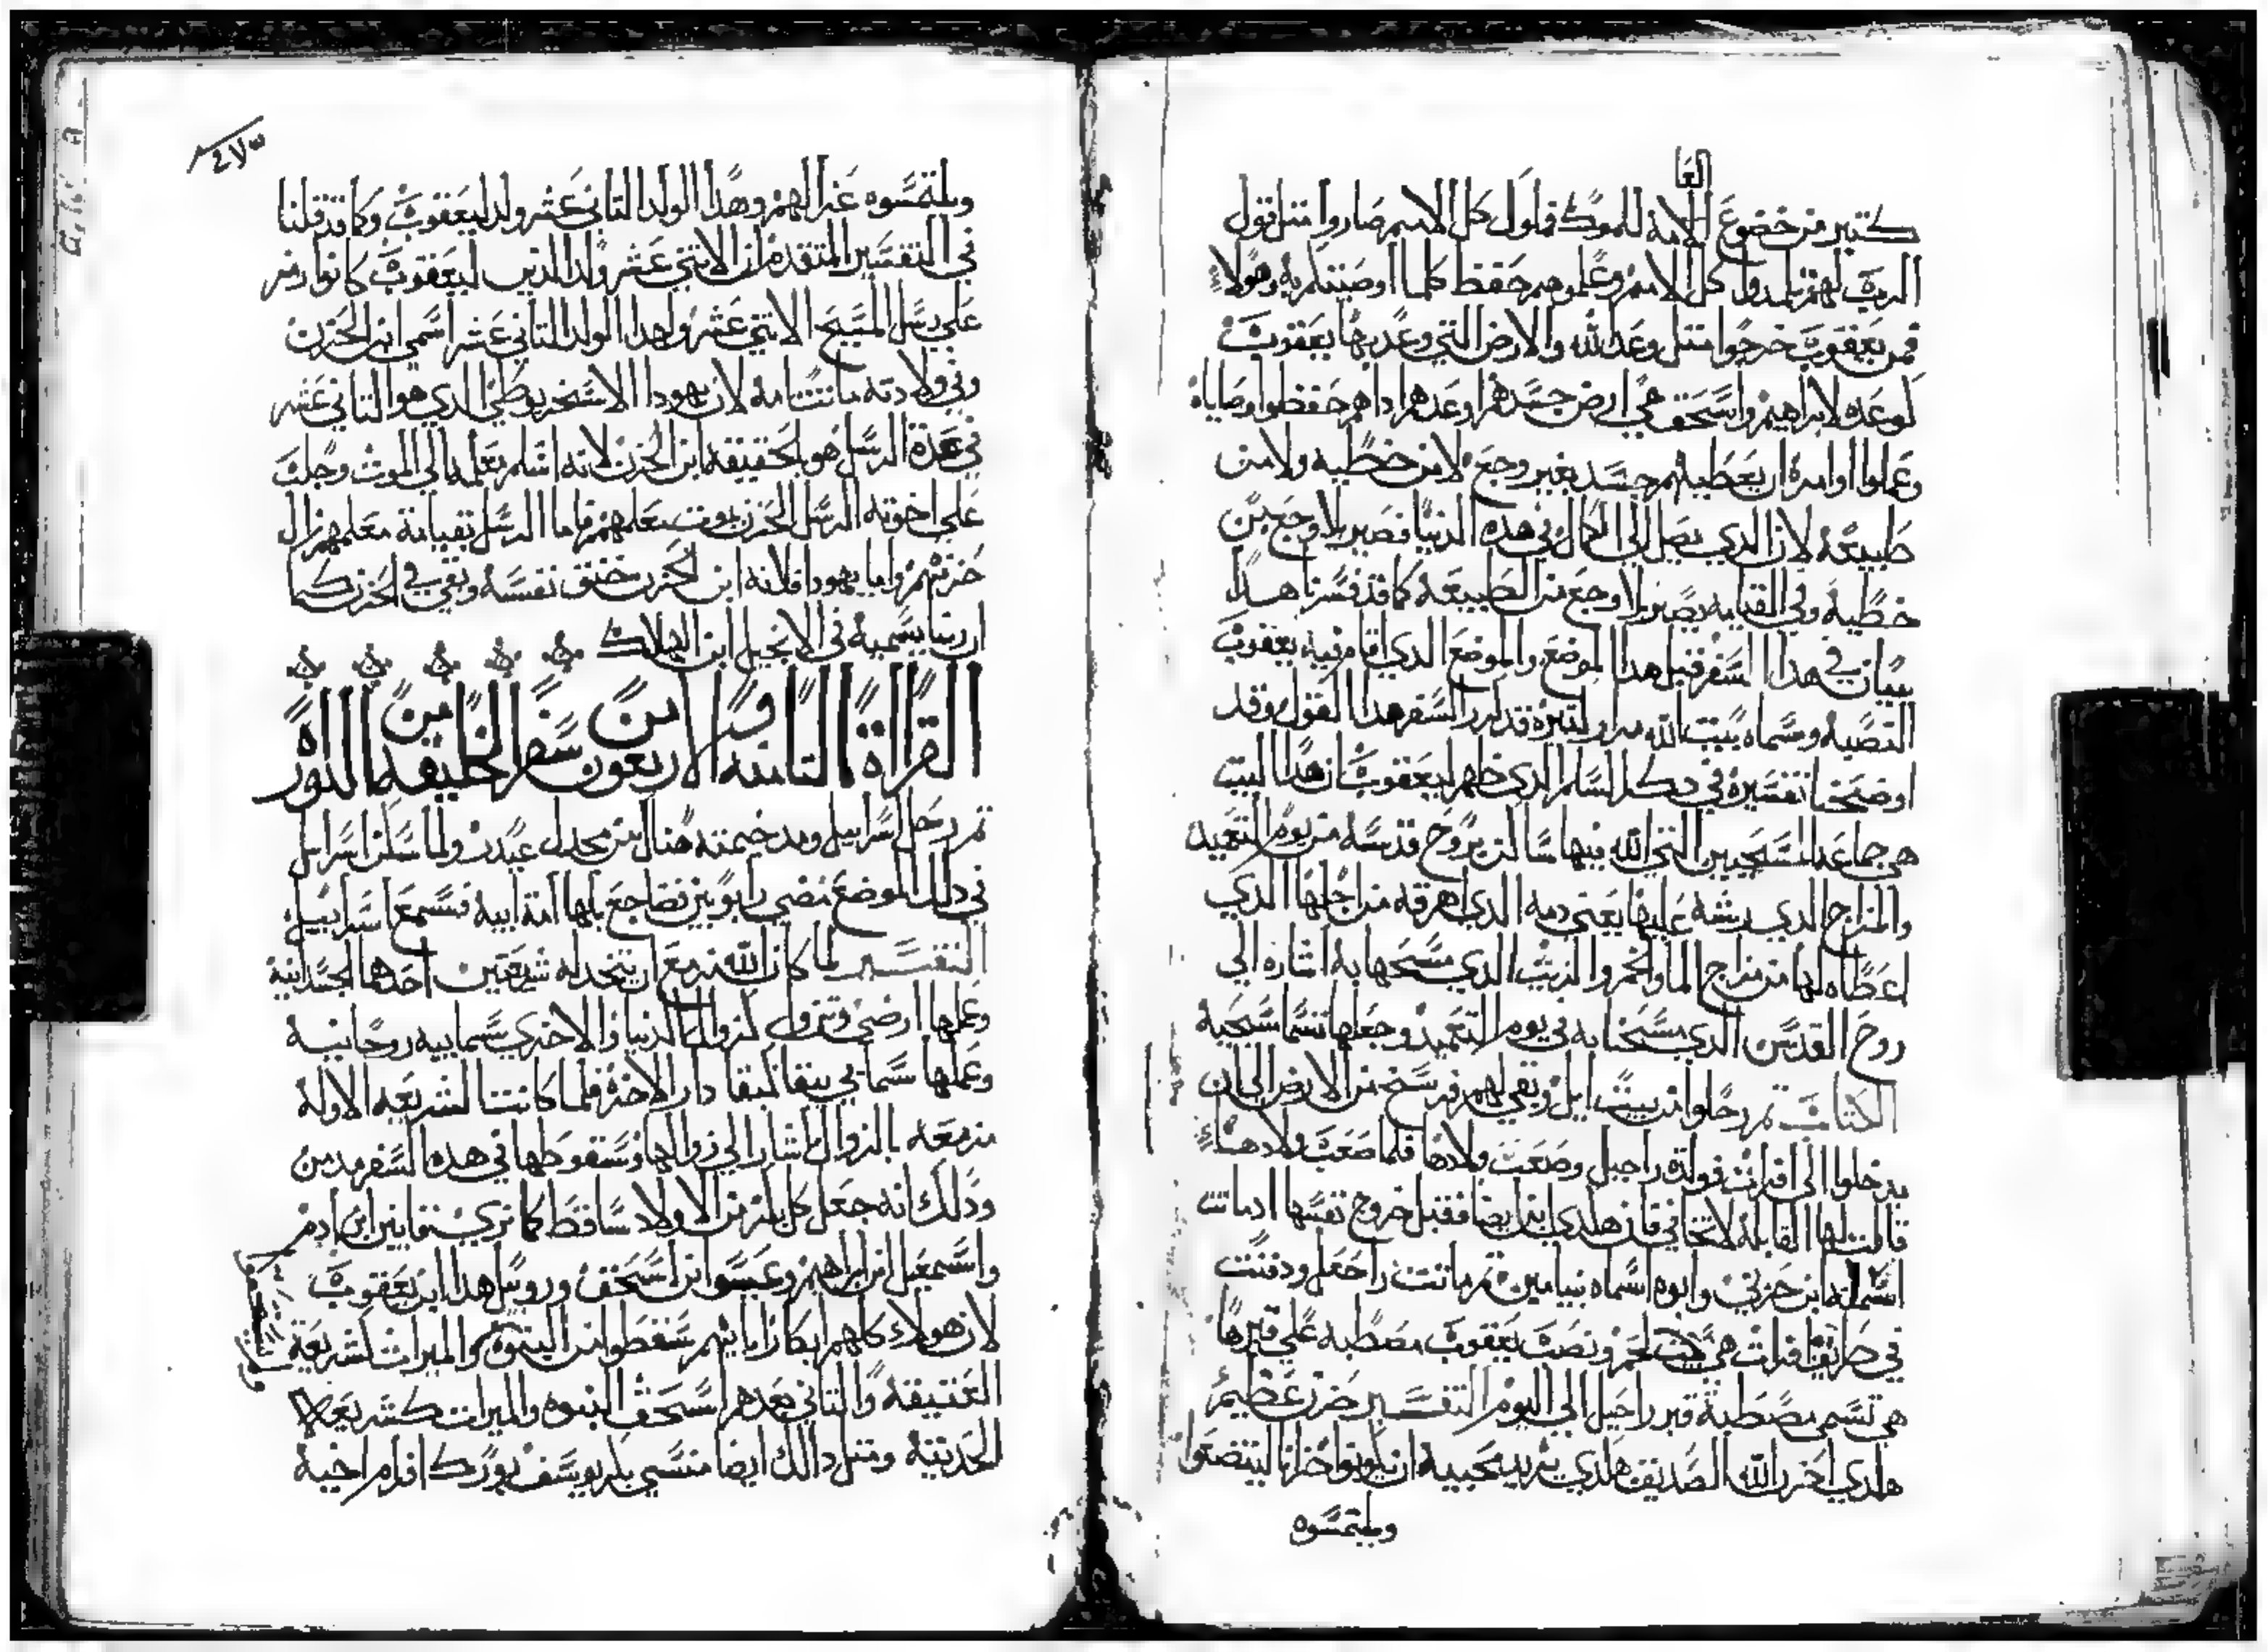 العا
كتير من خضوع الامه للموك فملوك كل الامم صاروا متل قول
الرب لهم تلمدوا كل الامم وعلموهم حفظ كلما اوصيتكم به وهولاء
فمن يعقوب خرجوا متل وعد الله والارض التي وعد بها يعقوب
لوعده لابراهيم واسحق هي ارض جسدهم اوعدهم اداهم حفظوا وصاياه
وعملوا اوامره ان يعطيهم جسد بغير وجع لا من خطيه ولا من
طبيعه لان الدي يصل الي الكمال في هده الدنيا فصير بلا وجع من
خطيه وفي القيامه يصير بلا وجع من الطبيعه كما قد فسرنا هدا
ببيان في هدا السفر قبل هدا الموضع والموضع الدي اقام فيه يعقوب
النصبه وسماه بيت الله مرار كتيره قد كرر السفر هدا القول وقد
اوضحنا تفسيره في دكر السلم الدي ظهر ليعقوب ان هدا البيت
هي جماعة المسيحيين التي الله فيها ساكن بروح قدسه من يوم التعميد
والمزاج الدي رشه عليها يعني دمه الدي اهرقه من اجلها الدي
اعطاه لها من مزاج الما والخمر والزيت الدي مسحها به اشاره الي
روح القدس الدي مسحنا به في يوم التعميد وجعلها تسما مسيحية
الكتاب تم رحلوا من بيت ايل وبقي لهم فرسخ من الارض الي ان
يدخلوا الي افرات فولدة راحيل وصعب ولادها فلما صعب ولادها
قالت لها القابله لا تخافي فان هدي ابن ايضا فقبل خروج نفسها ادماتت
اسمته ابن حزني وابوه اسماه بنيامين تم ماتت راحيل ودفنت
في طريق افرات هي بيت لحم ونصب يعقوب مصطبه علي قبرها
هي تسمي مصطبة قبر راحيل الي اليوم التفسير حزن عظيم
هلدي احزن الله الصديق هلدي يريد محبيه ان يكونوا حزانا ليتضعوا
ويلتمسوه
ويلتمسوه عزا لهم وهدا الولد التاني عشر ولد ليعقوب وكما قد قلنا
في التفسير المتقدم ان الاتني عشر ولد الدين ليعقوب كانوا رمز
علي رسل المسيح الاتني عشر وهدا الولد التاني عشر اسمي ابن الحزن
وفي ولادته ماتت امه لان يهودا الاسخريوطي الدي هو التاني عشر
في عدة الرسل هو بالحقيقه ابن الحزن لانه اسلم معلمه الي الموت وجلب
علي اخوته الرسل الحزن بموت معلمهم فاما الرسل بقيامة معلمهم زال
حزنهم واما يهودا فلانه ابن الحزن خنق نفسه وبقي في الحزن كما
ان ربنا يسميه في الانجيل ابن الهلاك
القراة التامنه والاربعون من سفر الخليقه من التوراه
تم رحل اسراييل ومد خيمته هناك من مجدل عيدر ولما سكن اسراييل
في دلك الموضع مضي رابوبين فضاجع بلها امة ابيه فسمع اسراييل
التفسير لما كان الله مزمع ان يتخد له شريعتين احدهما جسدانية
وعملها ارضي وتزول لزوال الدنيا والاخري سماييه روحانيه
وعملها سمايي يبقا لبقا دار الاخرة فلما كانت الشريعه الاوله
مزمعه بالزوال اشار الي زوالها وسقوطها في هده السفر مد من
ودلك انه جعل كل بكر من الاولاد ساقط كما نري سقا قايين ابن ادم
واسمعيل ابن ابراهيم وعيسو ابن اسحق وروبيل هدا ابن يعقوب
لان هولاء كلهم ابكار ابايهم سقطوا من البنوه والميرات كشريعة
العتيقه والتاني بعدهم استحق البنوه والميرات كشريعه
الحديته ومتل دالك ايضا منسي بكر يوسف بورك افرام اخيه